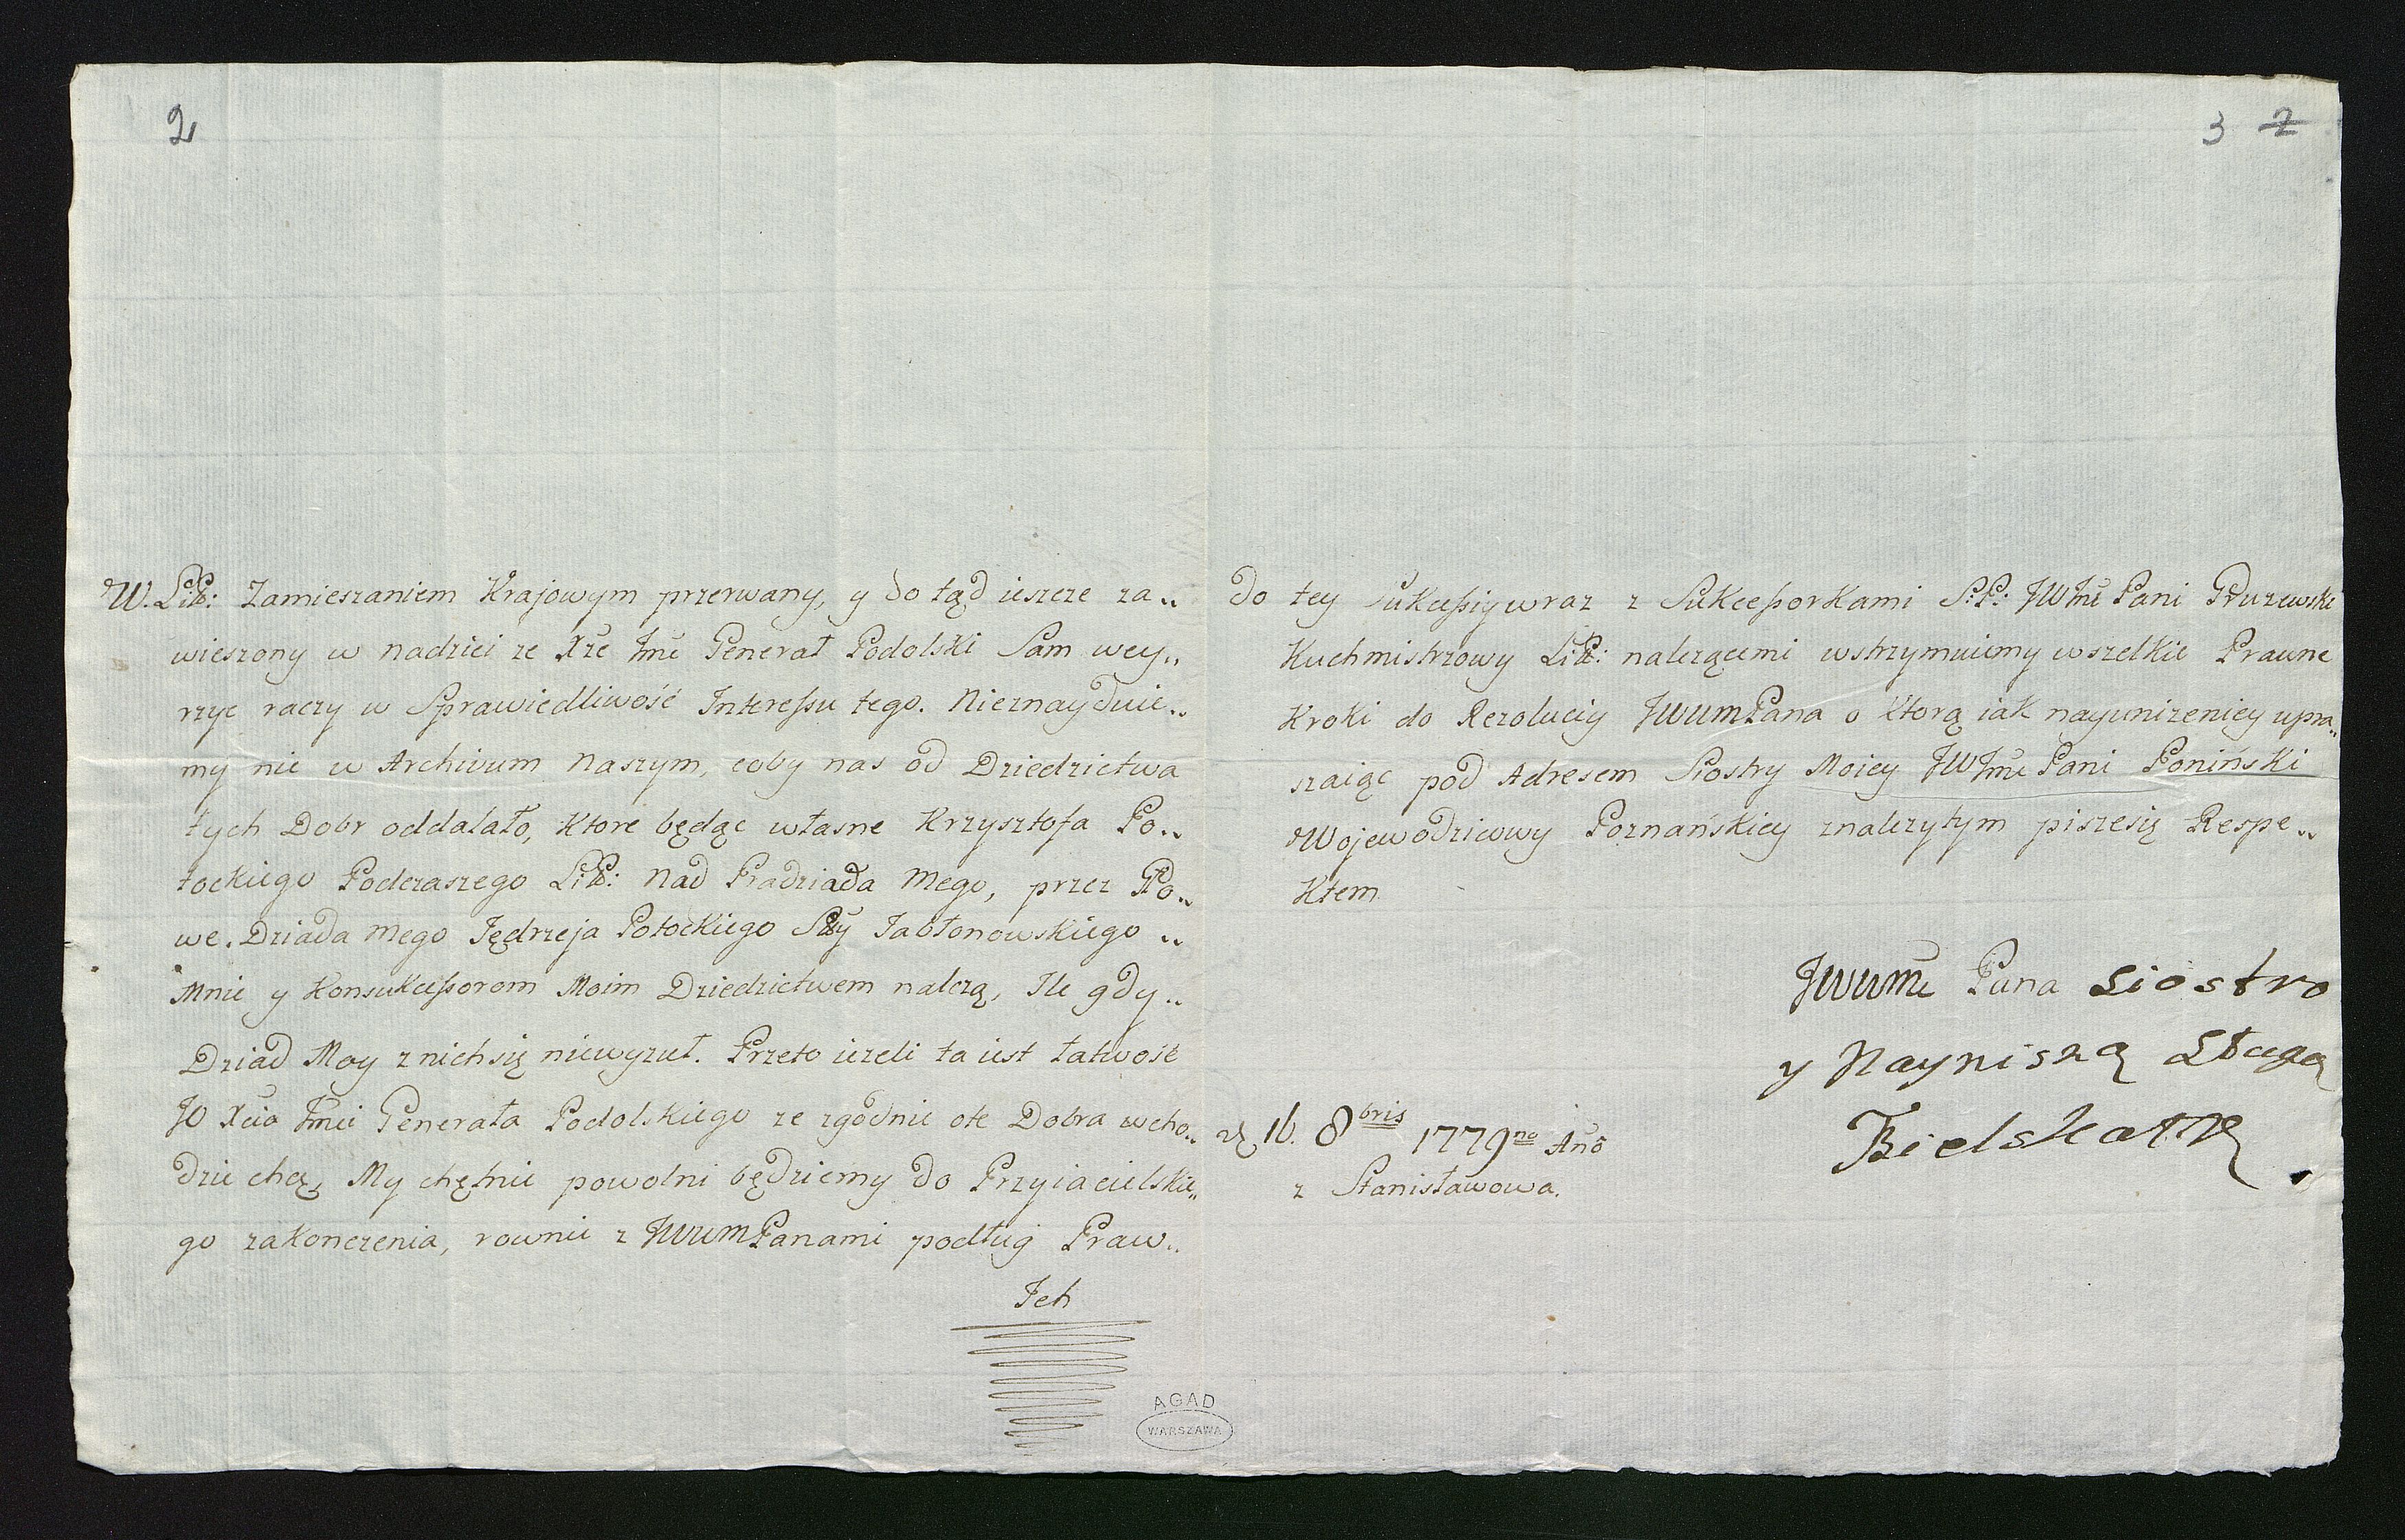 2
W. Litt: Zamieszaniem Krajowym przerwany, y do tąd ieszcze za„
wieszony w nadziei ze Xże Jmć Generał Podolski Sam wey„
rzyc raczy w Sprawiedliwość Interessu tego. Nieznayduie„
my nic w Archivum Naszym, coby nas od Dziedzictwa
tych Dobr oddalało, Ktore będąc własne Krzysztofa Po„
tockiego Podczaszego Litt: Nad Pradziada mego, przez Gło„
we. Dziada mego Jędrzeja Potockiego Jabłonowskiego „
Mnie y Konsukcessorom Moim Dziedzictwem nalezą, Ile gdy„
Dziad Moy z nich się niewyzuł. Przeto iezeli ta iest łatwość
JO Xcia Jmci Generała Podolskiego ze zgodnie ote Dobra wcho„
dzic chcę, My chętnie powolni będziemy do Przyiacielskie„
go zakonczenia, rownie z JWWMPanami podług Praw„
Ich
AGAD
WARSZAWA
3 2
do tey Sukcessiy wraz z Sukcessorkami S:P: JWJmć Pani Gruzewski
Kuchmistrzowy Litt: nalezącemi wstrzymuiemy wszelkie Prawne
Kroki do Rezoluciy JWWMPana o Ktorą iak nayunizeniey upra„
szaiąc pod Adresem Siostry Moiey JWJmć Pani Poniński
Wojewodzicowy Poznańskiey znalezytym piszesię Respe„
Ktem
JWWMć Pana Siostro
y Nayniszą Sługą
Bielska
16. 8bris 1779no Anō
z Stanisławowa.